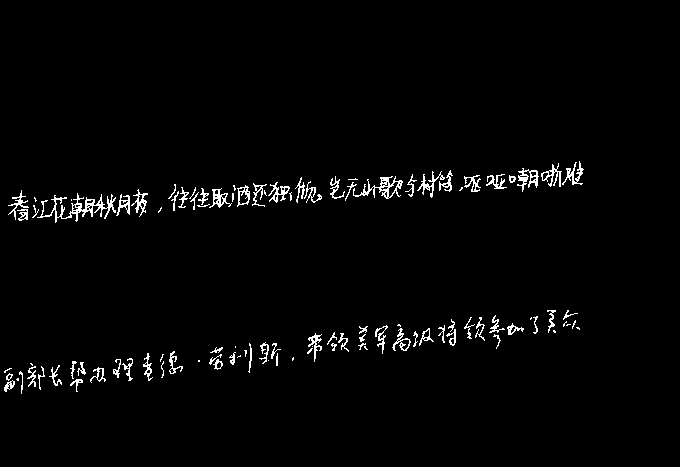 春江花朝秋月夜，往往取酒还独倾。岂无山歌与村笛，呕哑嘲哳难
副部长帮办理查德·劳利斯，率领美军高级将领参加了美众